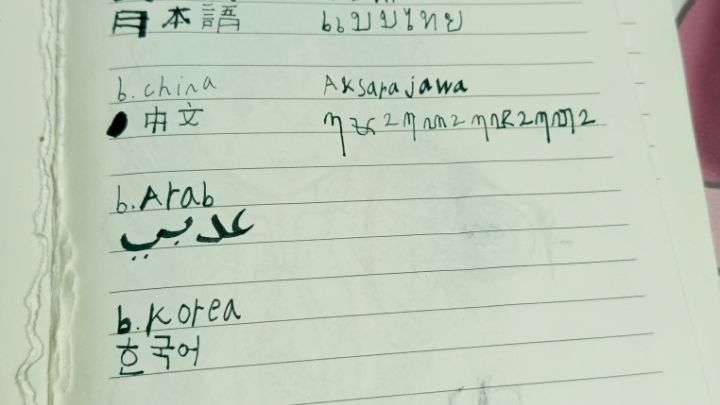 日本語 แบบไทย
b. china Aksara jawa
中文
b. Arab
عدبي
b. Korea
한국어